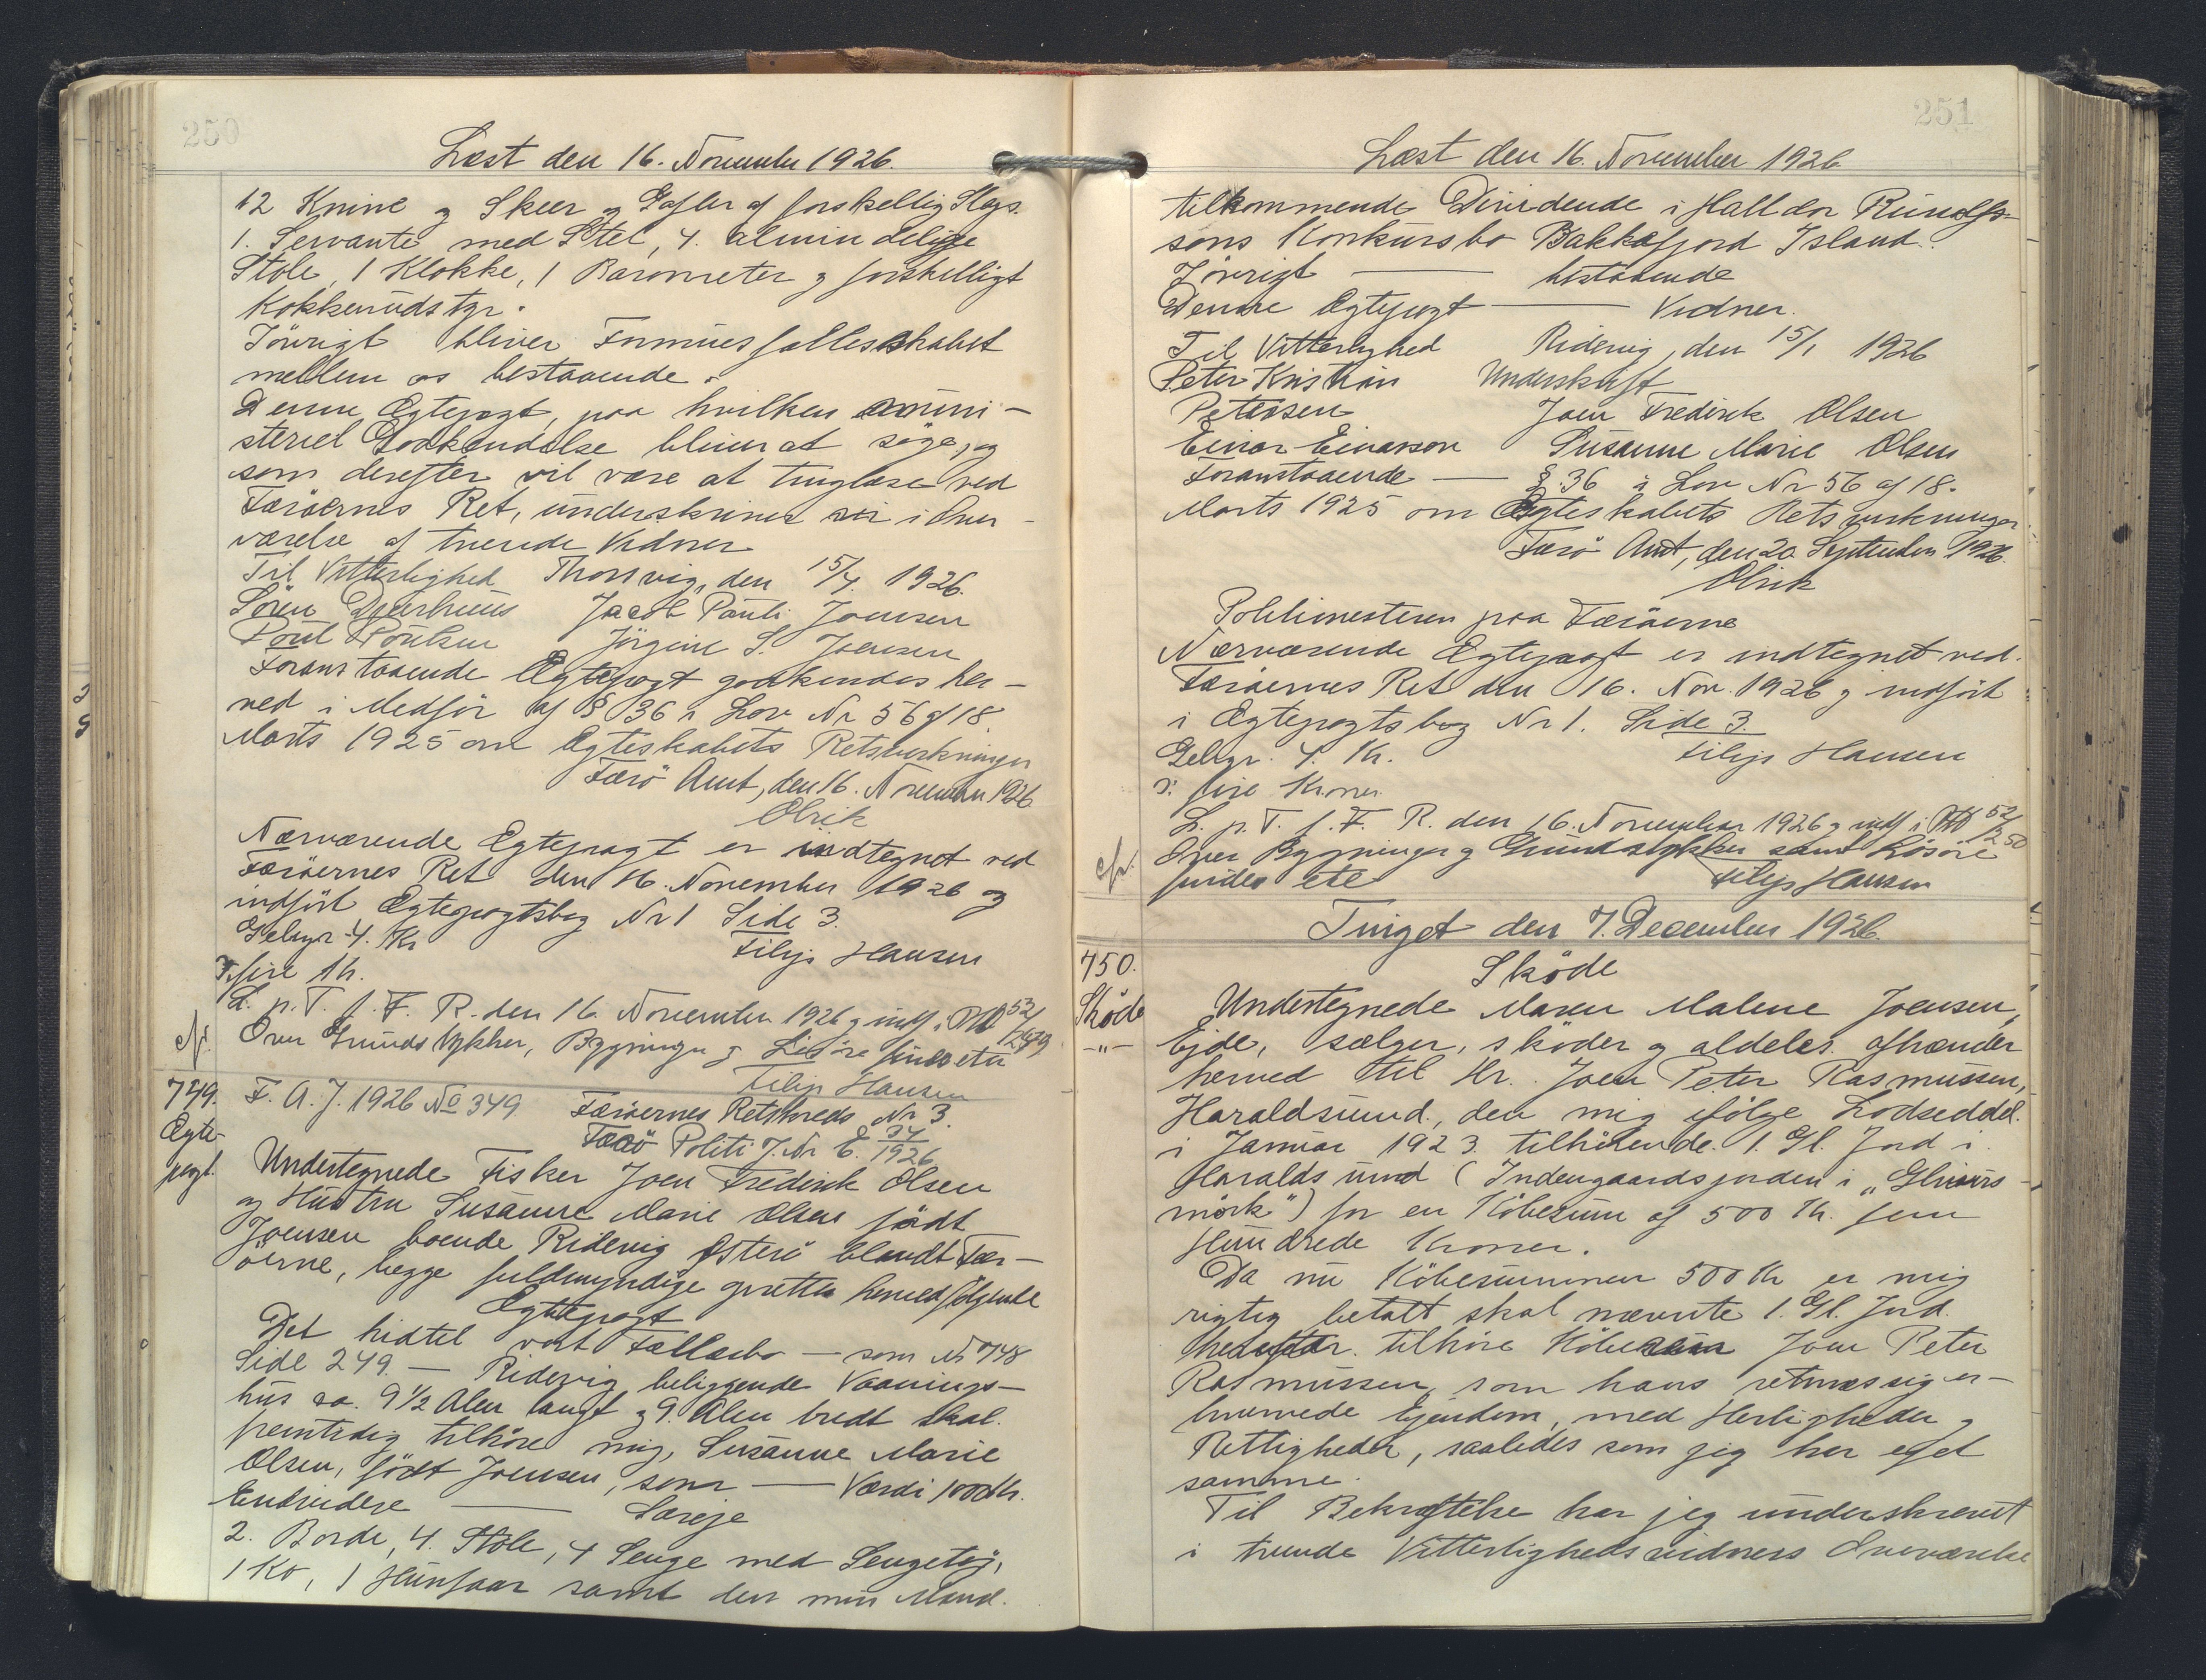 250
Læst den 16. November 1926.
12 Knive og Skeer og Gafler af forskellig Slags.
1. Servante med Stel, 4. almindelige
Stole, 1 Klokke, 1 Barometer og forskelligt
Kokkenudstyr.
Iövrigt bliver Formuesfællesskabet
mellem os bestaaende.
Denne Ægtepagt, paa hvilken
steriel Godkendelse bliver at söge, og
som derefter vil være at tinglæse ved
Færöernes Ret, underskrives i Over-
værelse af tvende Vidner
Til Vitterlighed Thorsvig, den 15/4 1926.
Sören Djurhuus Jacob Pauli Joensen
Poul Poulsen Jörgine S. Joensen
Foranstaaende Ægtepagt godkendes her-
ved i Medför af § 36 i Lov Nr 56 af 18
Marts 1925 om Ægteskabets Retsvirkninger
Færö Amt, den 16. November 1926
Olrik
Nærværende Ægtepagt er indtegnet ved
Færöernes Ret den 16. November 1926 og
indfört Ægtepagtsbog Nr 1 Side 3.
Gebyr 4. Kr Filip Hansen
fire Kr.
L. p. T. f. F. R. den 16. November 1926 og indf. i 53/249
cfr. Over Grundstykker, Bygninger og Lösöre findes etc
Filip Hansen
749. F. A. J. 1926 No 349 Færöernes Retskreds Nr 3.
Ægte- Færö Politi J. Nr E. 34/1926
pagt. Undertegnede Fisker Joen Fredirik Olsen
og Hustru Susanne Marie Olsen födt
Joensen boende Ridevig Österö blandt Fær-
öerne, begge fuldmyndige opretter herved følgende
Ægtepagt
Det hidtil vort Fællesbo — som Nr 748
Side 249. — Ridevig beliggende Vaanings-
hus ca. 9 1/2 Alen langt og 9. Alen bredt skal.
fremtidig tilhöre mig, Susanne Marie
Olsen, födt Joensen, som — Værdi 1000 Kr.
Endvidere — Særeje
2. Borde, 4. Stole, 4 Senge med Sengetöj,
1 Ko, 1 Hunfaar samt den min Mand.
251
Læst den 16. November 1926
tilkommende Dividende i Halldor Runolfs-
sons Konkursbo Bakkafjord Island.
Iövrigt — bestaaende
Denne Ægtepagt — Vidner.
Til Vitterlighed Ridevig, den 15/1 1926
Peter Kristian Underskrift
Petersen Joen Fredirik Olsen
Einar Einarsson Susanne Marie Olsen
Foranstaaende — § 36 i Lov Nr 56 af 18.
Marts 1925 om Ægteskabets Retsvirkninger.
Færö Amt, den 20. September 1926.
Olrik
Politimesteren paa Færöerne
Nærværende Ægtepagt er indtegnet ved.
Færöernes Ret den 16. Nov. 1926 og indfört
i Ægtepagtsbog Nr 1. Side 3.
Gebyr. 4. Kr. Filip Hansen
ɔ: fire Kroner
L. p. T. f. F. R. den 16. November 1926 og indf i 52/250
cfr. Over Bygninger og Grundstykker samt Lösöre
findes etc Filip Hansen
Tinget den 7. December 1926.
750. Sköde
Sköde Undertegnede Maren Malene Joensen,
-"- Ejde, sælger, sköder og aldeles afhænder
herved til Hr. Joen Peter Rasmussen,
Haraldsund, den mig ifölge Lodseddel.
i Januar 1923. tilhörende. 1. Gl. Jord i
Haraldsund (Indengaardsjorden i „
mörk") for en Köbesum af 500 Kr. fem
Hundrede Kroner.
Da nu Köbesummen 500 Kr er mig
rigtig betalt skal nævnte 1. Gl. Jord.
herefter tilhöre Köberen Joen Peter
Rasmussen, som hans retmæssig er-
hvervede Ejendom, med Herligheder og
Rettigheder, saaledes som jeg har ejet
samme.
Til Bekræftelse har jeg underskrevet
i tvende Vitterlighedsvidners Overværelse